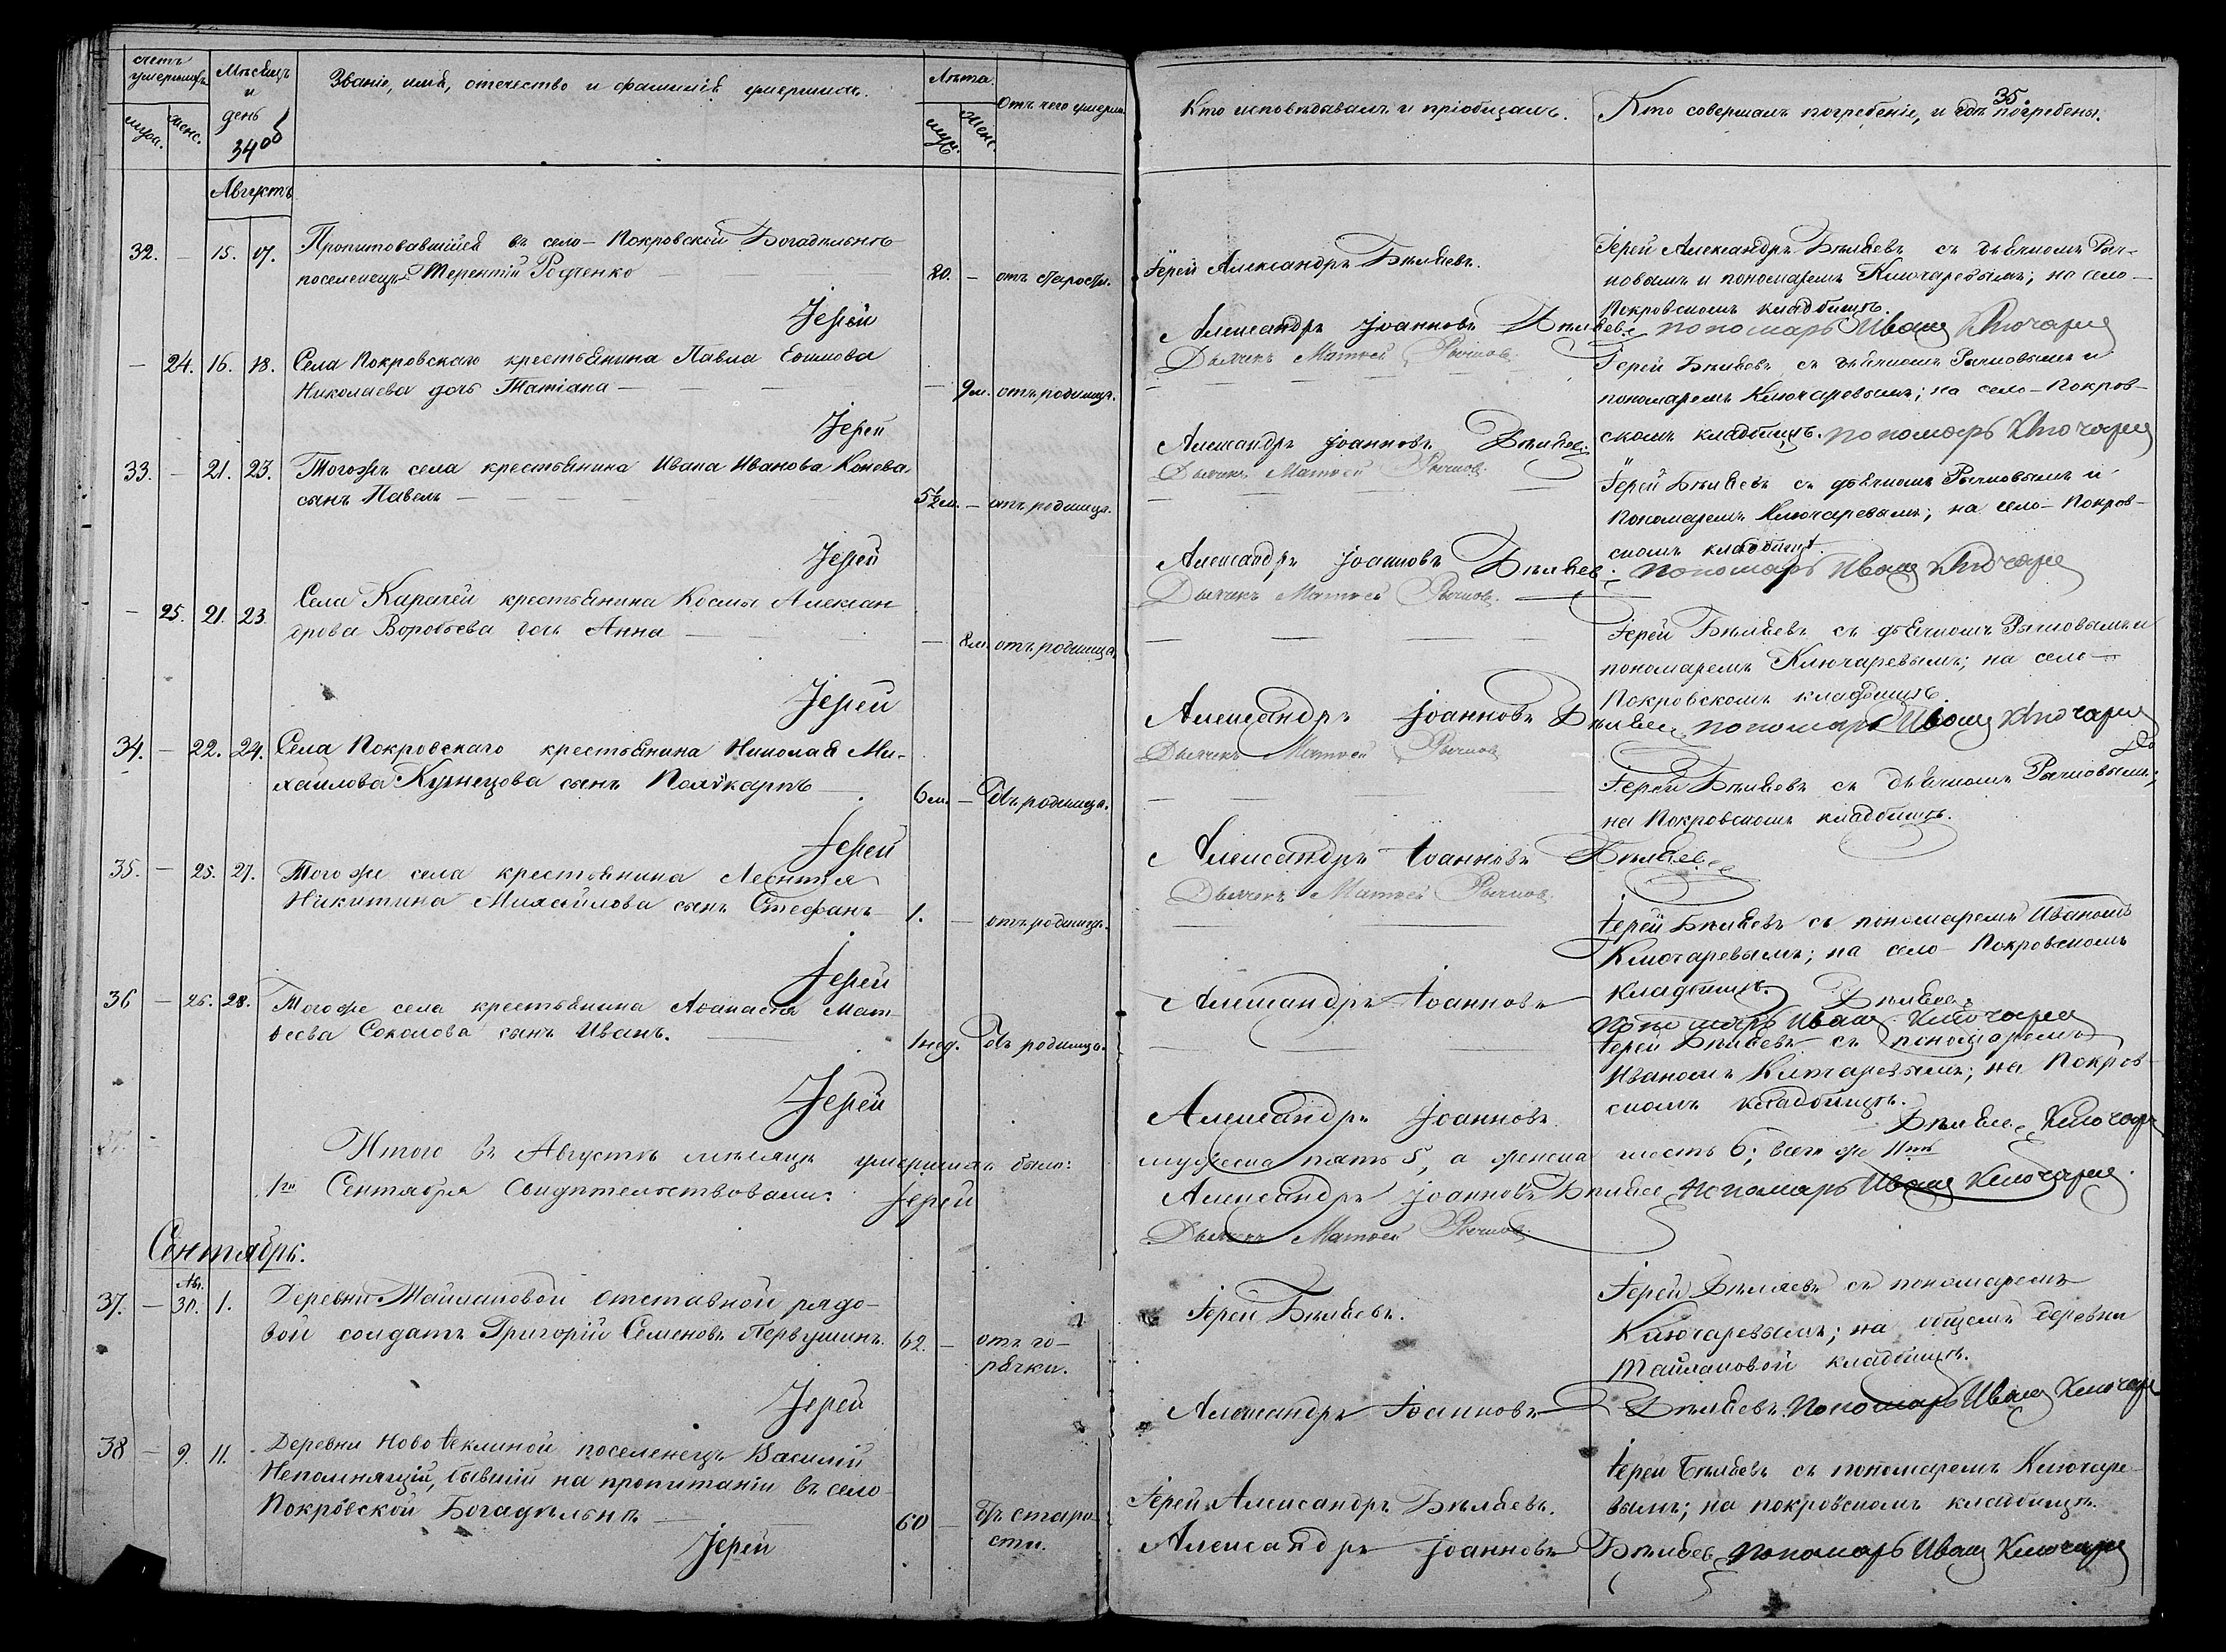 счетъ умершихъ
Мѣсяцъ и день
Званіе, имя, отчество и фамилія умершихъ.
Лѣта.
Отъ чего умерли
муж. женс.
муж. женс.
34 об
Кто исповѣдывалъ и пріобщалъ.
Кто совершалъ погребеніе, и гдѣ погребены.
35.
Августъ
32. — 15. 17. Пропитовавшійся въ село-Покровской Богадѣльнѣ
поселенецъ Терентій Родченко — 80. — отъ старости.
Іерей Александръ Бѣляевъ.
Іерей Александръ Бѣляевъ съ дьячкомъ Рыч-
ковымъ и пономаремъ Ключаревымъ; на село-
Покровскомъ кладбищѣ.
Іерей Александръ Іоанновъ Бѣляевъ пономарь Иванъ Ключаревъ
Дьячекъ Матвей Рычковъ.
— 24. 16. 18. Села Покровскаго крестьянина Павла
Николаева дочь Татіана — — 9 м. отъ родимца.
Іерей Бѣляевъ съ дьячкомъ Рычковымъ и
пономаремъ Ключаревымъ; на село-Покров-
скомъ кладбищѣ. пономарь Ключаревъ
Іерей Александръ Іоанновъ Бѣляевъ
Дьячекъ Матвей Рычковъ.
33. — 21. 23. Тогожъ села крестьянина Ивана Иванова Конева
сынъ Павелъ — 5½ м. — отъ родимца.
Іерей Бѣляевъ съ дьячкомъ Рычковымъ и
Пономаремъ Ключаревымъ; на село-Покров-
скомъ кладбищѣ.
Іерей Александръ Іоанновъ Бѣляевъ пономарь Иванъ Ключаревъ
Дьячекъ Матвей Рычковъ.
— 25. 21. 23. Села Карачей крестьянина Космы Алексан
дрова Воробьева дочь Анна — — 8 м. отъ родимца.
Іерей Бѣляевъ съ дьячкомъ Рычковымъ и
пономаремъ Ключаревымъ; на село-
Покровскомъ кладбищѣ.
Іерей Александръ Іоанновъ Бѣляевъ пономарь Иванъ Ключаревъ
Дьячекъ Матвей Рычковъ
34. — 22. 24. Села Покровскаго крестьянина Николая Ми-
хаилова Кузнецова сынъ Поликарпъ — 6 м. — Отъ родимца.
Іерей Бѣляевъ съ дьячкомъ Рычковымъ;
на Покровскомъ кладбищѣ.
Іерей Александръ Іоанновъ Бѣляевъ
Дьячекъ Матвей Рычковъ.
35. — 25. 27. Того же села крестьянина Леонтія
Никитина Михайлова сынъ Стефанъ 1. — отъ родимца.
Іерей Бѣляевъ съ пономаремъ Иваномъ
Ключаревымъ; на село-Покровскомъ
кладбищѣ.
Іерей Александръ Іоанновъ Бѣляевъ
Пономарь Иванъ Ключаревъ
36 — 26. 28. Того же села крестьянина Аѳанасія Мат-
веева Соколова сынъ Иванъ. — 1 нед. Отъ родимца.
Іерей Бѣляевъ съ пономаремъ
Иваномъ Ключаревымъ; на Покров-
скомъ кладбищѣ.
Іерей Александръ Іоанновъ Бѣляевъ Ключаревъ
Итого въ Августѣ мѣсяцѣ умершихъ было: мужеска пять 5, а женска шесть 6; всего же 11ть
1го Сентября Свидѣтельствовали: Іерей Александръ Іоанновъ Бѣляевъ пономарь Иванъ Ключаревъ.
Дьячекъ Матвей Рычковъ
Сентябрь.
37. — Ав. 30. 1. Деревни Майлановой отставной рядо-
вой солдатъ Григорій Семеновъ Первушинъ. 62. — отъ го-
рячки.
Іерей Бѣляевъ.
Іерей Бѣляевъ съ пономаремъ
Ключаревымъ; на общемъ деревни
Майлановой кладбищѣ.
Іерей Александръ Іоанновъ Бѣляевъ. Пономарь Иванъ Ключаревъ
38 — 9. 11. Деревни Ново поселенецъ Василій
Непомнящій, бывшій на пропитаніи въ село-
Покровской Богадѣльнѣ — 60 — Отъ старо-
сти.
Іерей Александръ Бѣляевъ.
Іерей Бѣляевъ съ пономаремъ Ключаре-
вымъ; на покровскомъ кладбищѣ.
Іерей Александръ Іоанновъ Бѣляевъ Пономарь Иванъ Ключаревъ